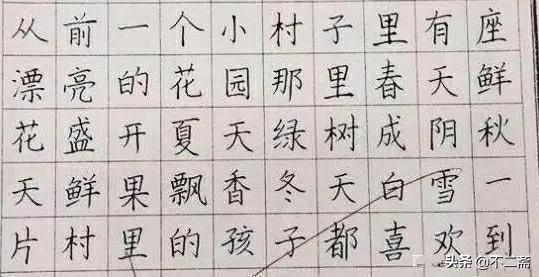 从前一个小村子里有座
漂亮的花园那里春天鲜
花盛开夏天绿树成阴秋
天鲜果飘香冬天白雪一
片村里的孩子都喜欢到
头条 @不二斋